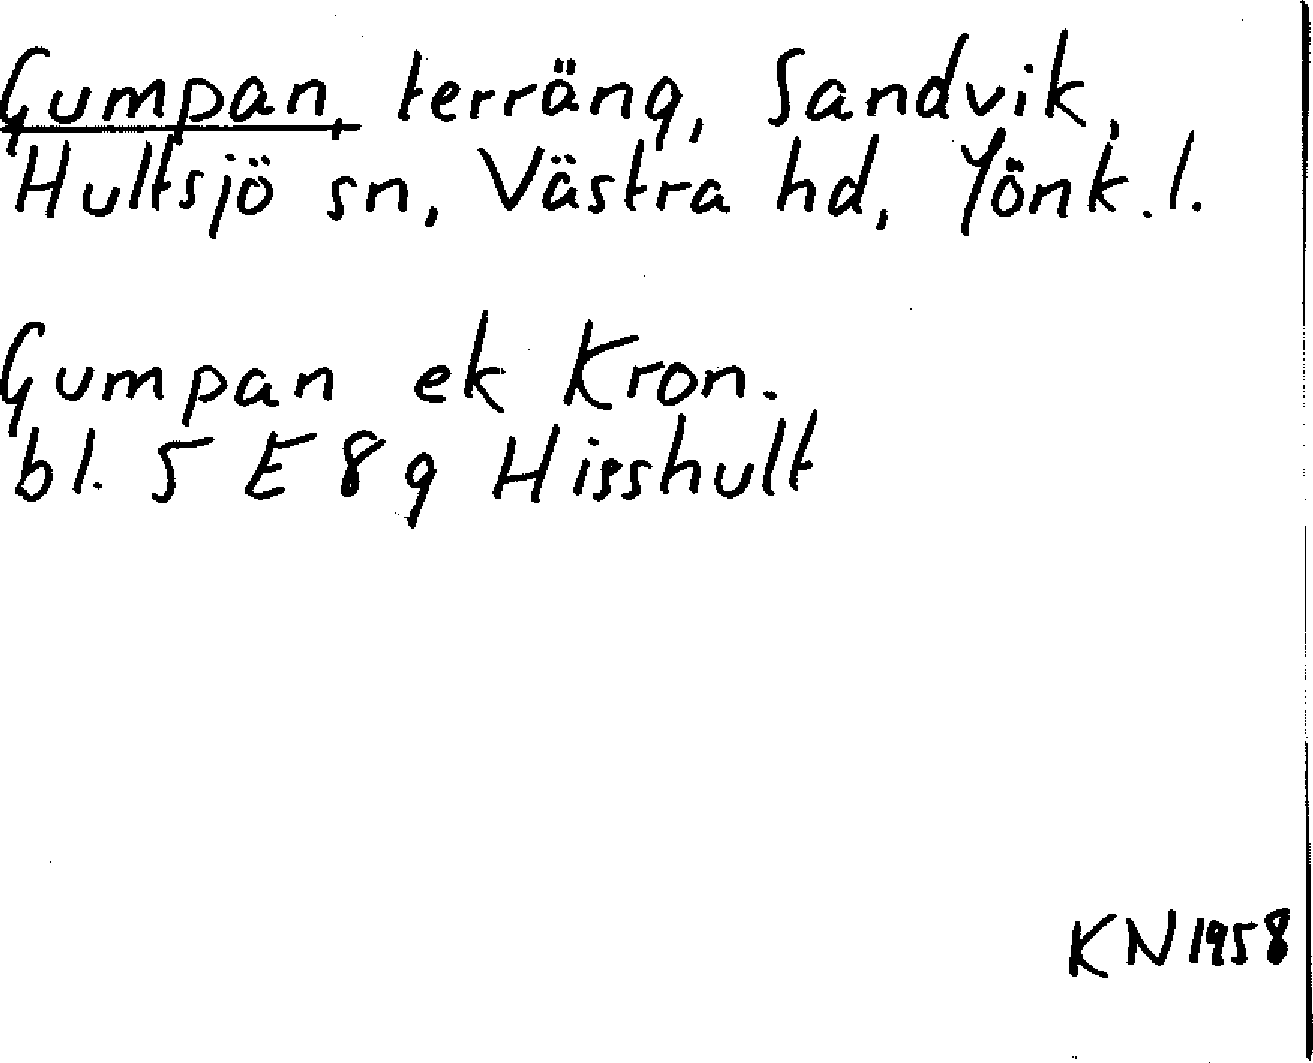 Gumpan, terräng, Sandvik,
Hultsjö sn, Västra hd, Jönk. l.
Gumpan ek Kron.
bl. 5 E 8 g Hisshult
KN 1958